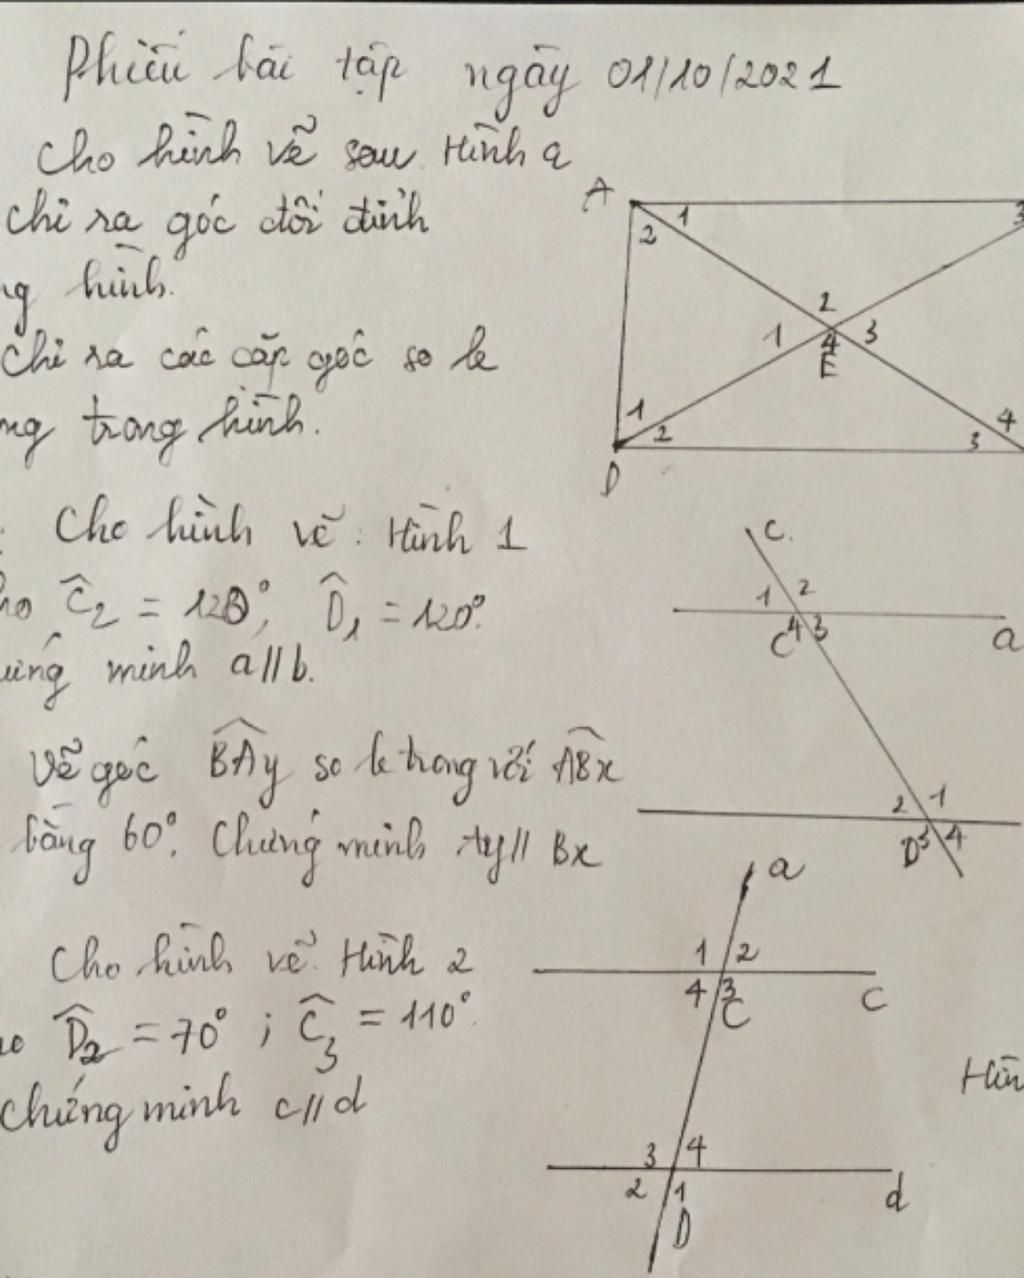 Phiếu bài tập ngày 01/10/2021
Cho hình vẽ sau Hình a
A
1
3
2
chỉ ra góc đối đỉnh
ng hình.
2
1
3
4
E
Chỉ ra các cặp góc so le
ng trong hình.
1
2
3
4
D
Cho hình vẽ: Hình 1
c.
ho Ĉ2 = 120°; D̂1 = 120°.
1
2
C
4
3
a
ứng minh a // b.
Vẽ góc BAy so le trong với ABx
2
1
bằng 60°. Chứng minh Ay // Bx
D
3
4
a
Cho hình vẽ. Hình 2
1
2
4
3
C
c
ho D̂2 = 70° ; Ĉ3 = 110°.
Hìn
chứng minh c // d
3
4
2
1
D
d